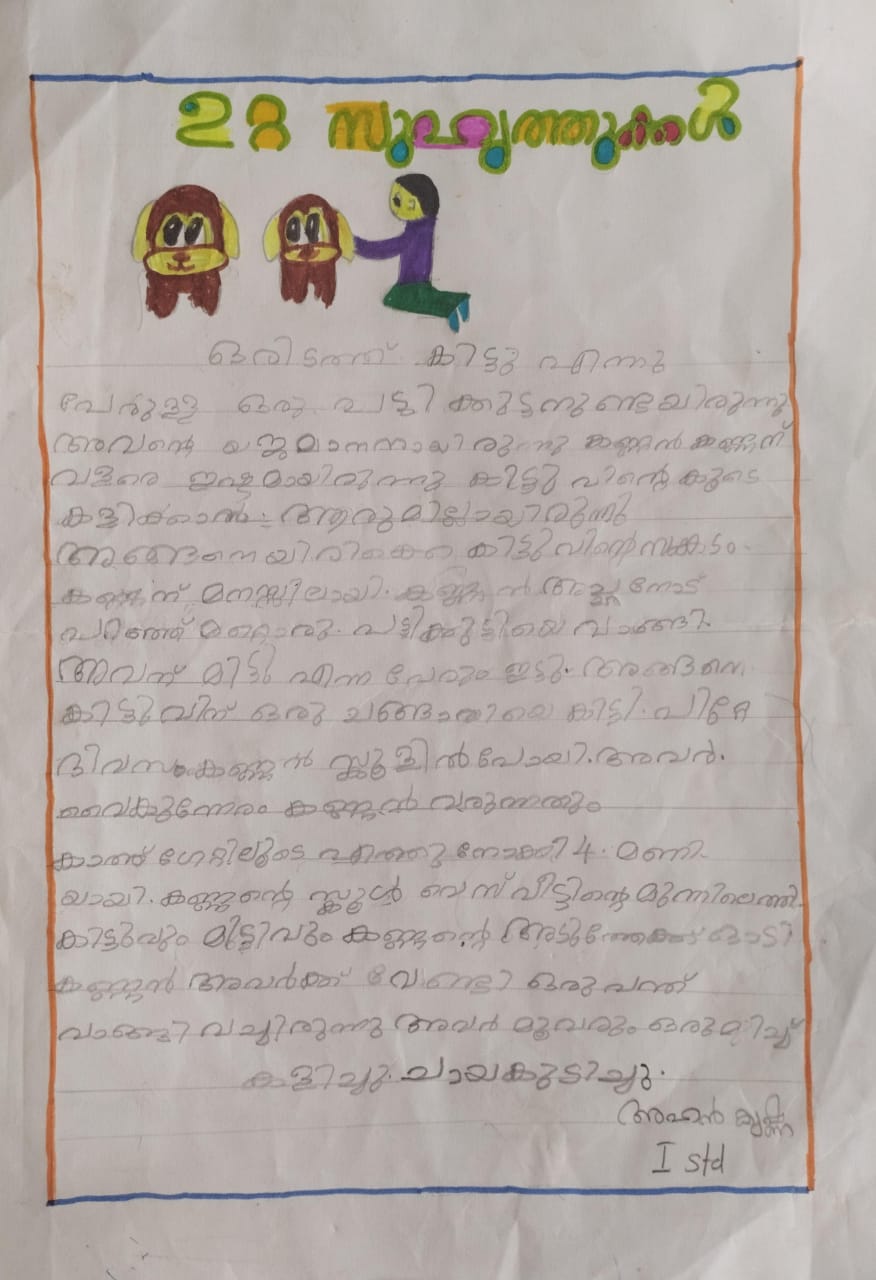 2 8 സുഹൃത്തുക്കൾ
ഒരിടത്ത് കിട്ടു എന്നു
പേരുള്ള ഒരു പട്ടി ക്കുട്ടനുണ്ടയിരുന്നു
അവന്റെ യജമാനനായിരുന്നു കണ്ണൻ കണ്ണന്
വളരെ ഇഷ്ടമായിരുന്നു കിട്ടു വിന്റെ കൂടെ
കളിക്കാൻ. ആരുമില്ലായിരുന്നു
അങ്ങനെയിരിക്കെ കിട്ടുവിന്റെ സങ്കടം.
കണ്ണന് മനസ്സിലായി. കണ്ണൻ അച്ഛനോട്
പറഞ്ഞ് മറ്റൊരു. പട്ടിക്കുട്ടിയെ വാങ്ങി.
അവന് മിട്ടു എന്ന പേരും ഇട്ടു. അങ്ങനെ
കിട്ടുവിന് ഒരു ചങ്ങാതിയെ കിട്ടി. പിറ്റേ
ദിവസം കണ്ണൻ സ്കൂളിൽ പോയി. അവർ.
വൈകുന്നേരം കണ്ണൻ വരുന്നതും
കാത്ത് ഗേറ്റിലൂടെ എത്തു നോക്കി 4. മണി.
യായി. കണ്ണന്റെ സ്കൂൾ ബസ് വീട്ടിന്റെ മുന്നിലെത്തി.
കിട്ടുവും മിട്ടിവും കണ്ണന്റെ അടുത്തേക്ക് ഓടി
കണ്ണൻ അവർക്ക് വേണ്ടി ഒരു പന്ത്
വാങ്ങി വച്ചിരുന്നു അവർ മൂവരും ഒരുമിച്ച്
കളിച്ചു. ചായകുടിച്ചു.
അഹൻ കൃഷ്ണ
I std